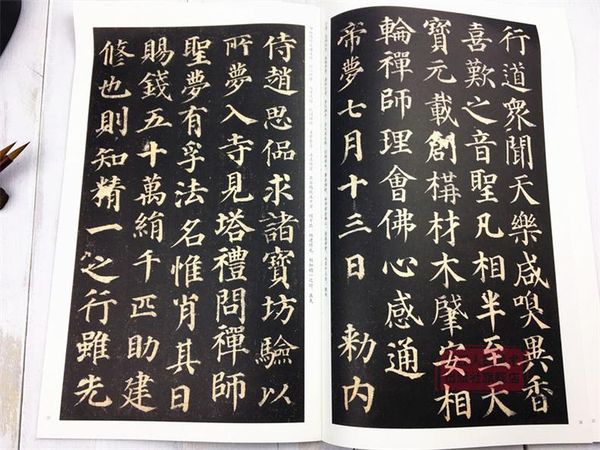 行道衆聞天樂咸嗅異香
喜歎之音聖凡相半至天
寶元載創構材木肇安相
輪禪師理會佛心感通
帝夢七月十三日 勅内
侍趙思偘求諸寶坊驗以
所夢入寺見塔禮問禪師
聖夢有孚法名惟肖其日
賜錢五十萬絹千匹助建
修也則知精一之行雖先